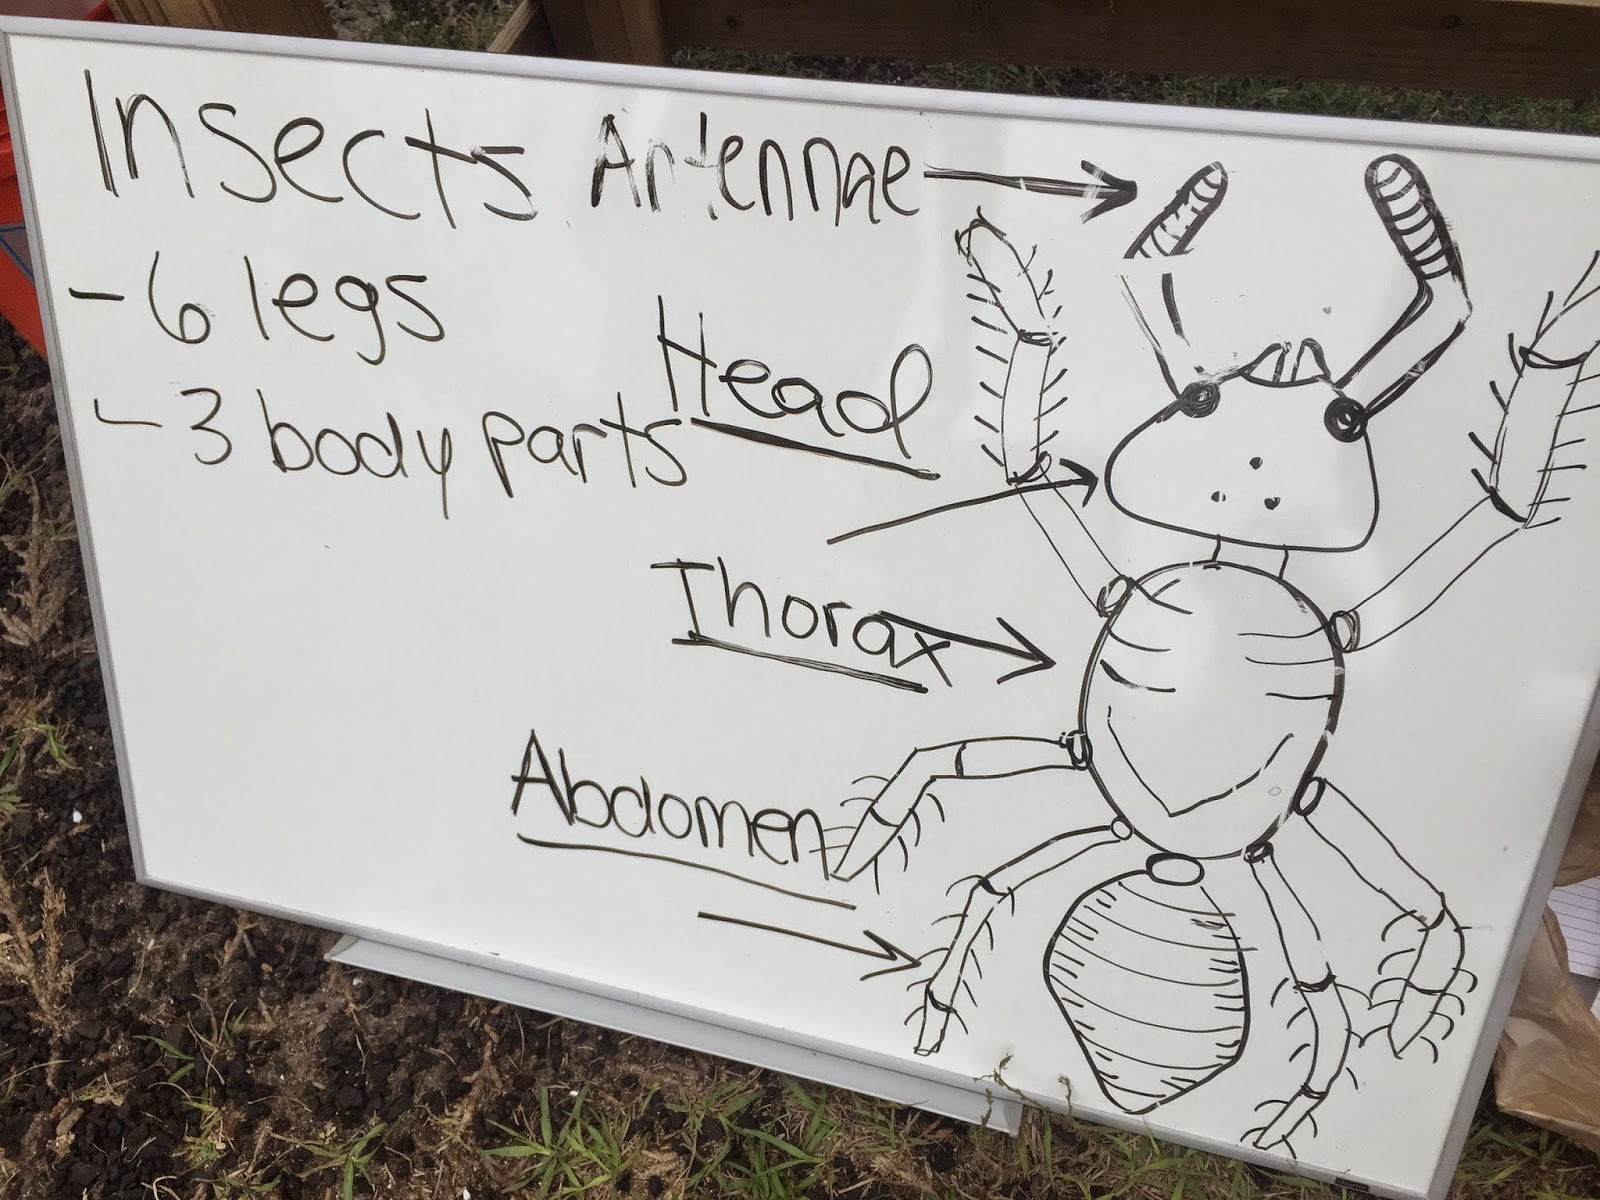 Insects
Antennae
- 6 legs
- 3 body parts
Head
Thorax
Abdomen